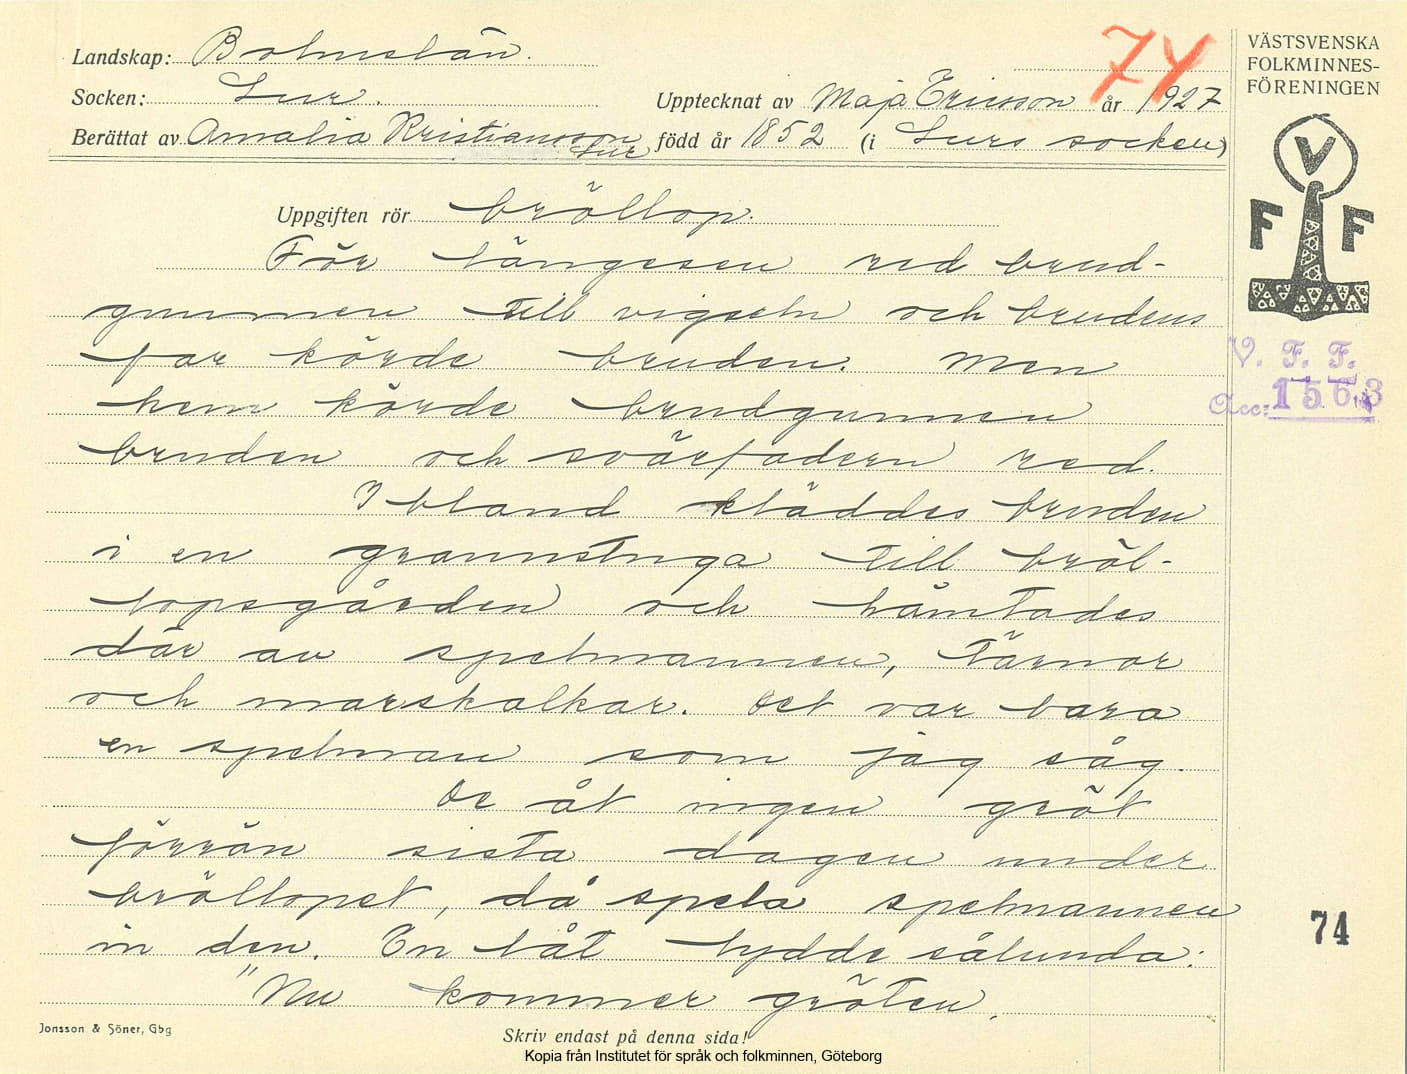 Landskap: Bohuslän.
Socken: Lur.
Upptecknat av Maja Ericsson år 1927
Berättat av Amalia Kristiansson Lur född år 1852 (i Lurs socken)
74
VÄSTSVENSKA
FOLKMINNES-
FÖRENINGEN
V
F F
V. F. F.
Acc: 1563
Uppgiften rör bröllop.
För längesen red brud-
gummen till vigseln och brudens
far körde bruden. Men
hem körde brudgummen
bruden och svärfadern red.
Ibland kläddes bruden
i en grannstuga till bröl-
lopsgården och hämtades
där av spelmannen, tärnor
och marskalkar. Det var bara
en spelman som jag såg.
De åt ingen gröt
förrän sista dagen under
bröllopet, då spela spelmannen
in den. En låt lydde sålunda:
"Nu kommer gröten,
74
Jonsson & Söner, Gbg
Skriv endast på denna sida!
Kopia från Institutet för språk och folkminnen, Göteborg